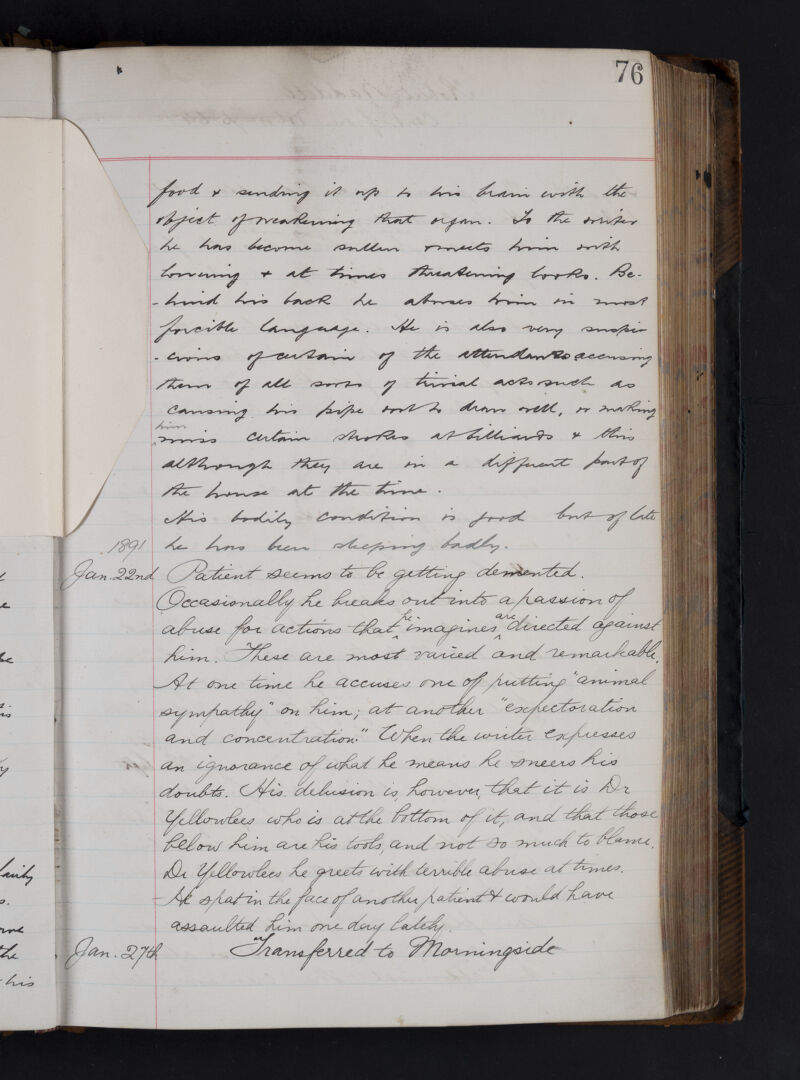 76
food & sending it up to his brain with the
object of weakening that organ. To the writer
he has become sullen & meets him with
lowering & at times threatening looks. Be-
-hind his back he abuses him in most
forcible language. He is also very suspi-
-cious of certain of the attendants accusing
them of all sorts of trivial acts such as
causing his pipe not to draw well, or making
him
miss certain strokes at billiards & this
although they are in a different part of
the house at the time.
His bodily condition is good but of late
he has been sleeping badly.
1891
Jan. 22nd Patient seems to be getting demented.
Occasionally he breaks out into a passion of
abuse for actions that he imagines are directed against
him. These are most varied and remarkable.
At one time he accuses one of putting "animal
sympathy" on him; at another "expectoration
and concentration." When the writer expresses
an ignorance of what he means he sneers his
doubts. His delusion is, however, that it is Dr
Yellowlees who is at the bottom of it, and that those
below him are his tools, and not so much to blame.
Dr Yellowlees he greets with terrible abuse at times.
He spat in the face of another patient & would have
assaulted him one day lately.
Jan. 27th Transferred to Morningside